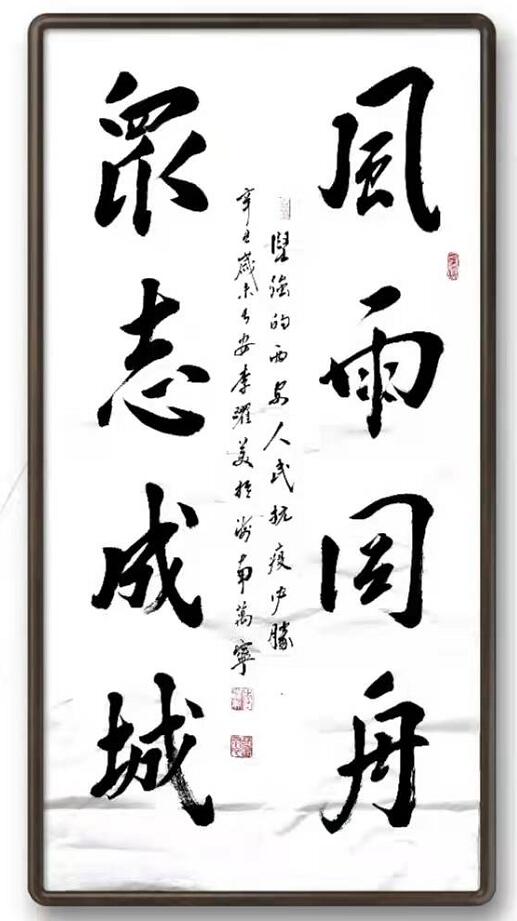 風雨同舟
衆志成城
堅強的西安人民抗疫必勝
辛丑歲末長安李躍美於海南萬寧